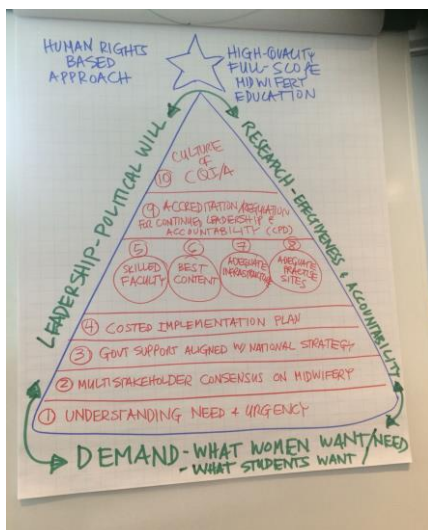 HUMAN RIGHTS
BASED
APPROACH
HIGH-QUALITY
FULL-SCOPE
MIDWIFERY
EDUCATION
LEADERSHIP-POLITICAL WILL
RESEARCH-EFFECTIVENESS & ACCOUNTABILITY
CULTURE
OF
⑩ CQI/A
⑨ ACCREDITATION/REGULATION
FOR CONTINUED LEADERSHIP &
ACCOUNTABILITY (CPD)
⑤ SKILLED
FACULTY
⑥ BEST
CONTENT
⑦ ADEQUATE
INFRASTRUCTURE
⑧ ADEQUATE
PRACTICE
SITES
④ COSTED IMPLEMENTATION PLAN
③ GOVT SUPPORT ALIGNED W/ NATIONAL STRATEGY
② MULTISTAKEHOLDER CONSENSUS ON MIDWIFERY
① UNDERSTANDING NEED + URGENCY
DEMAND-WHAT WOMEN WANT/NEED
-WHAT STUDENTS WANT